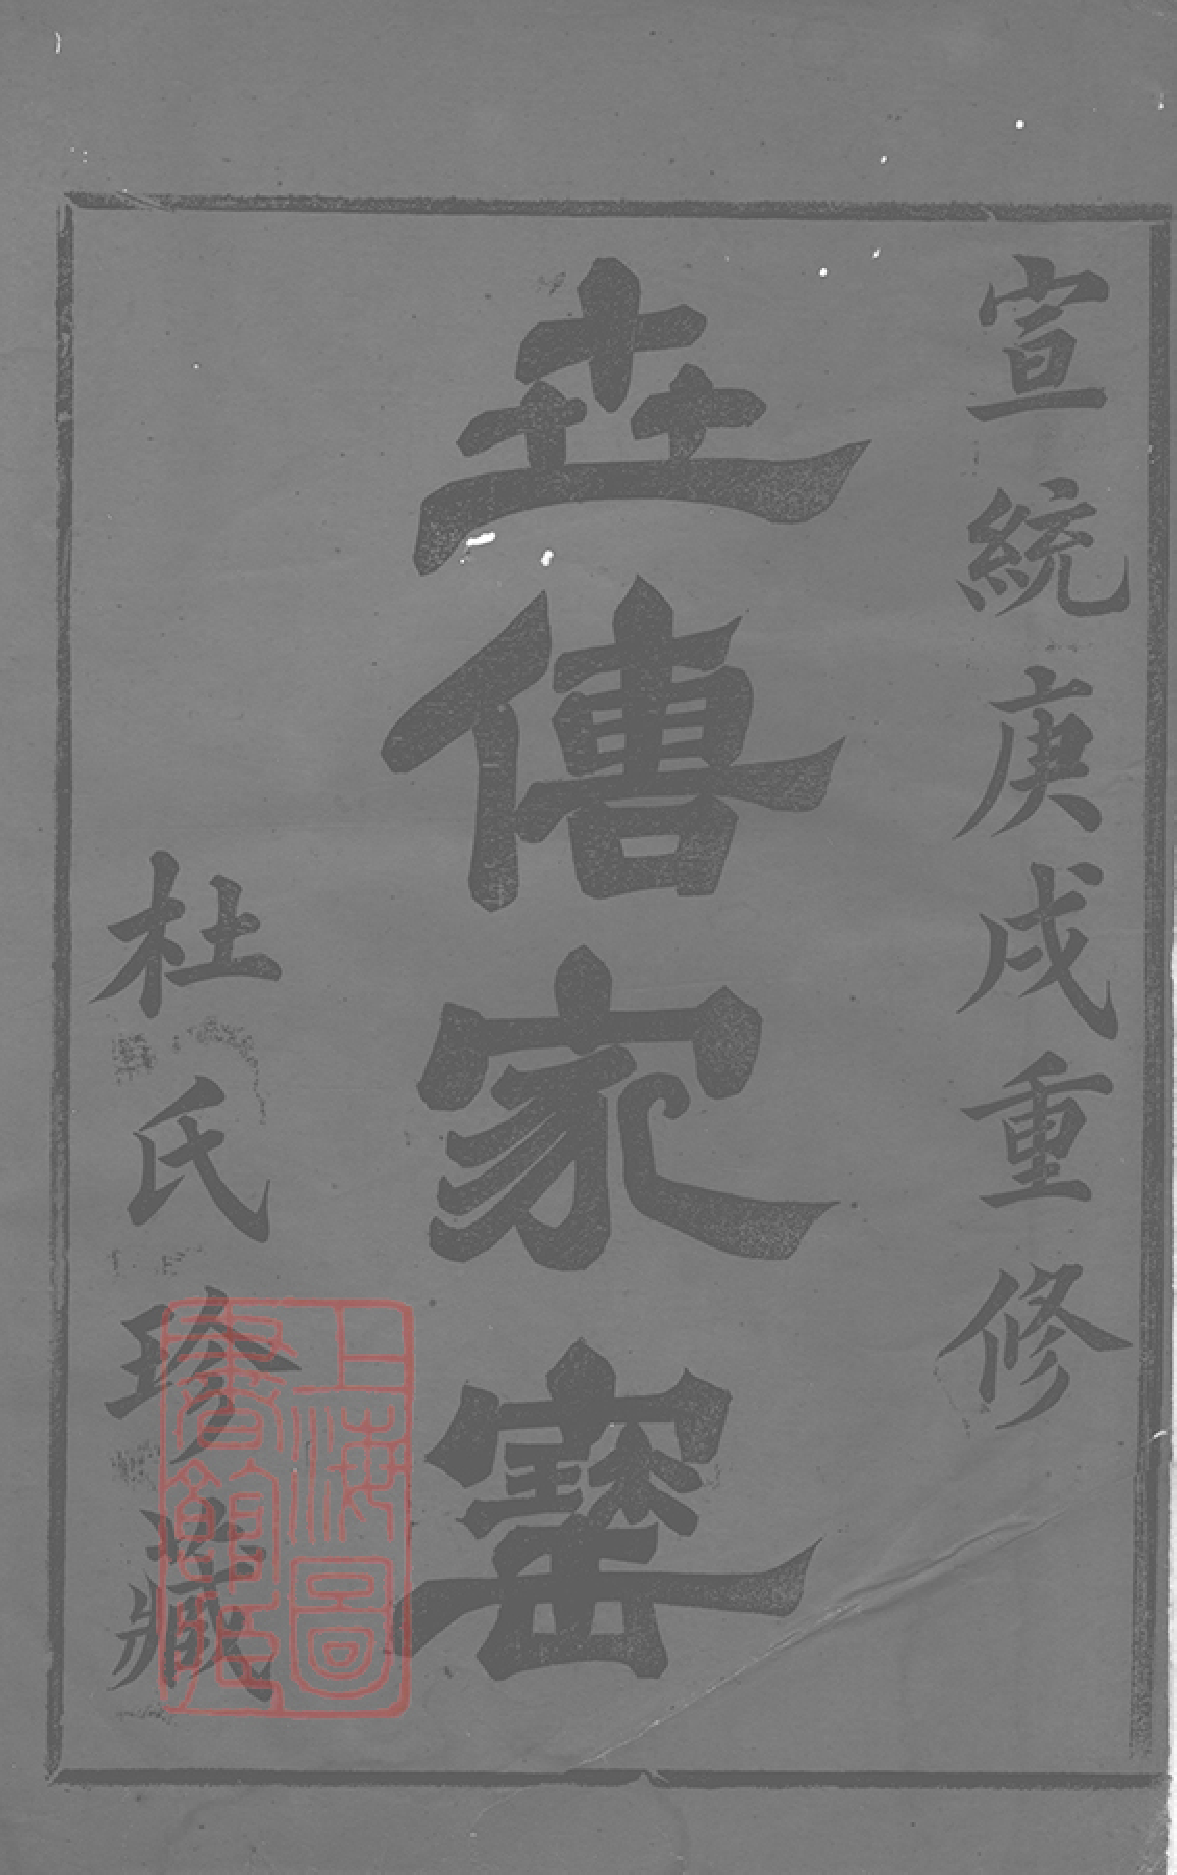 宣統庚戌重修
世傳家寳
杜氏珍藏
上海圖
書館藏